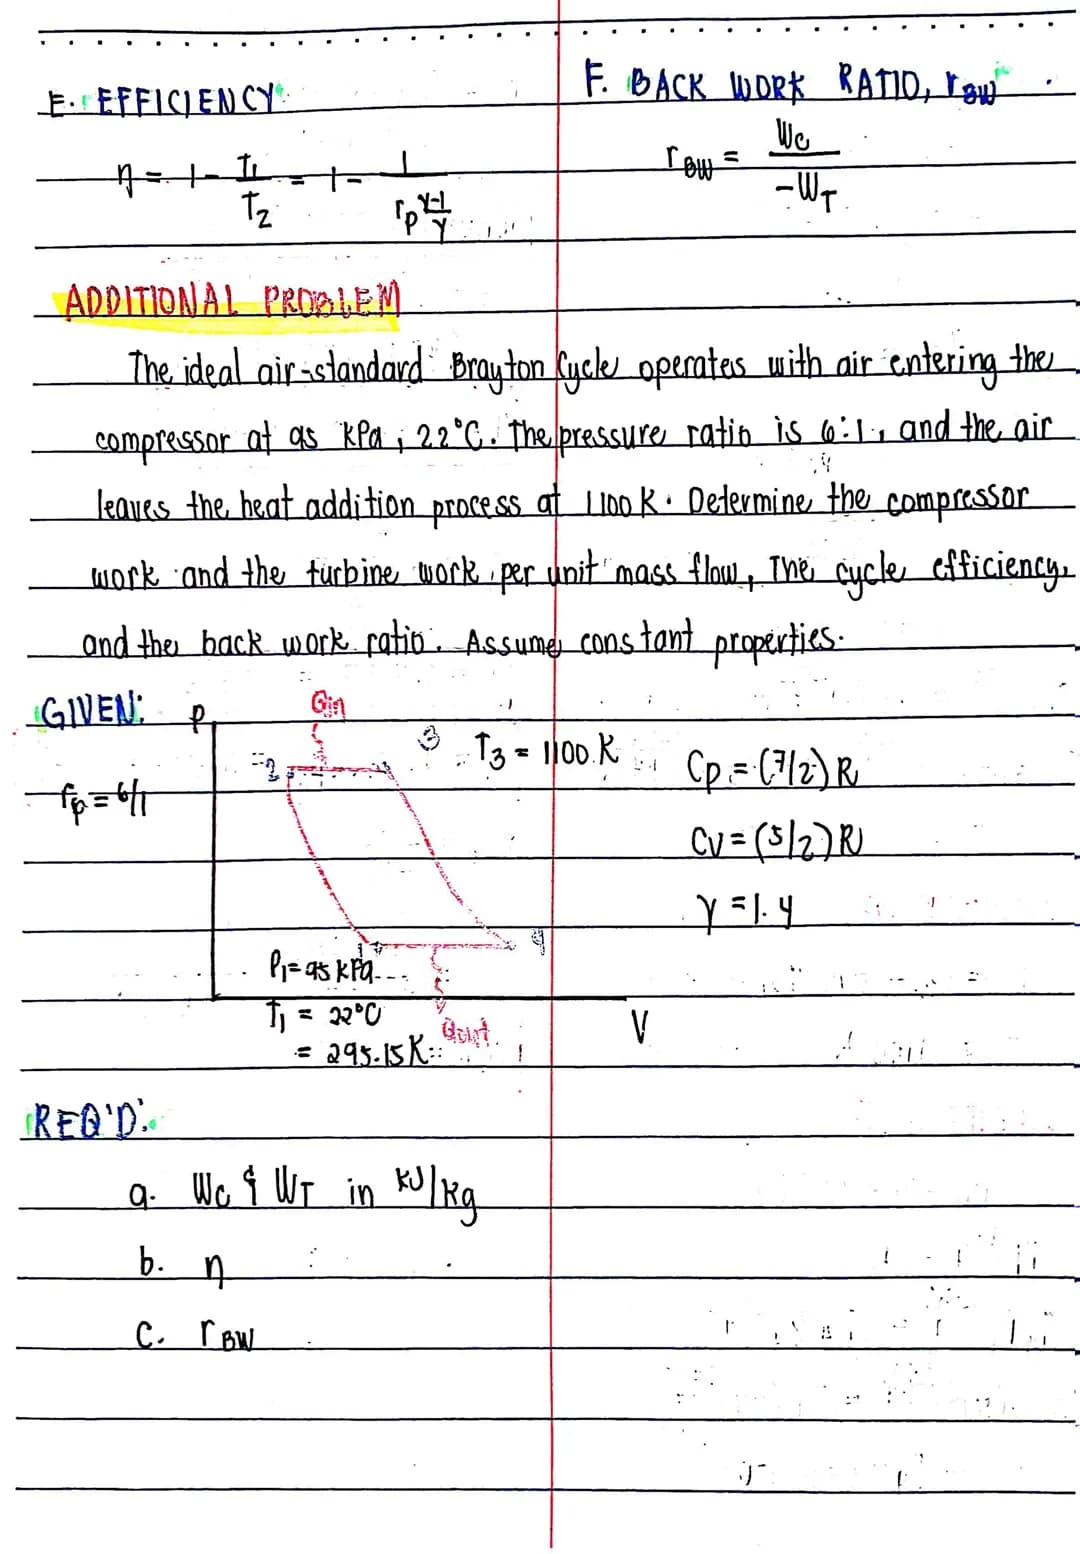 E. EFFICIENCY
η = 1 - T1/T2 = 1 - 1/rp^(γ-1/γ)
F. BACK WORK RATIO, rBW
rBW = Wc/-WT
ADDITIONAL PROBLEM
The ideal air-standard Brayton Cycle operates with air entering the
compressor at 95 kPa, 22°C. The pressure ratio is 6:1, and the air
leaves the heat addition process at 1100 K. Determine the compressor
work and the turbine work per unit mass flow, The cycle efficiency,
and the back work ratio. Assume constant properties.
GIVEN:
rp = 6/1
P
Qin
2
3
T3 = 1100 K
4
1
P1 = 95 kPa
T1 = 22°C
= 295.15 K
Qout
V
Cp = (7/2) R
Cv = (5/2) R
γ = 1.4
REQ'D:
a. Wc & WT in kJ/kg
b. η
c. rBW